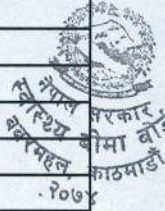 नेपाल सरकार
स्वास्थ्य बीमा बोर्ड
बबरमहल, काठमाडौँ
२०७४